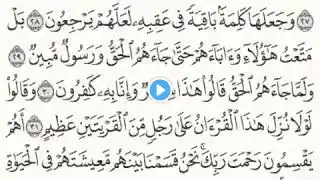 ٢٧ وَجَعَلَهَا كَلِمَةً بَاقِيَةً فِى عَقِبِهِۦ لَعَلَّهُمْ يَرْجِعُونَ ٢٨ بَلْ
مَتَّعْتُ هَٰٓؤُلَآءِ وَءَابَآءَهُمْ حَتَّىٰ جَآءَهُمُ ٱلْحَقُّ وَرَسُولٌ مُّبِينٌ ٢٩
وَلَمَّا جَآءَهُمُ ٱلْحَقُّ قَالُوا۟ هَٰذَا سِحْرٌ وَإِنَّا بِهِۦ كَٰفِرُونَ ٣٠ وَقَالُوا۟
لَوْلَا نُزِّلَ هَٰذَا ٱلْقُرْءَانُ عَلَىٰ رَجُلٍ مِّنَ ٱلْقَرْيَتَيْنِ عَظِيمٍ ٣١ أَهُمْ
يَقْسِمُونَ رَحْمَتَ رَبِّكَ ۚ نَحْنُ قَسَمْنَا بَيْنَهُم مَّعِيشَتَهُمْ فِى ٱلْحَيَوٰةِ